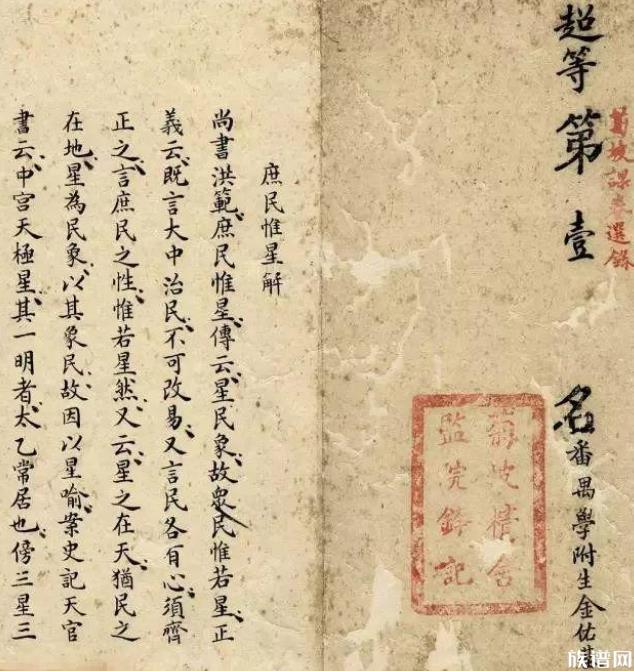 菊坡課卷選錄
超等第壹名
番禺學附生金佑
菊坡精舍
監院鈐記
庶民惟星解
尚書洪範庶民惟星傳云星民象故眾民惟若星正
義云既言大中治民不可改易又言民各有心須齊
正之言庶民之性惟若星然又云星之在天猶民之
在地星為民象以其象民故因以星喻案史記天官
書云中宮天極星其一明者太乙常居也傍三星三
族谱网